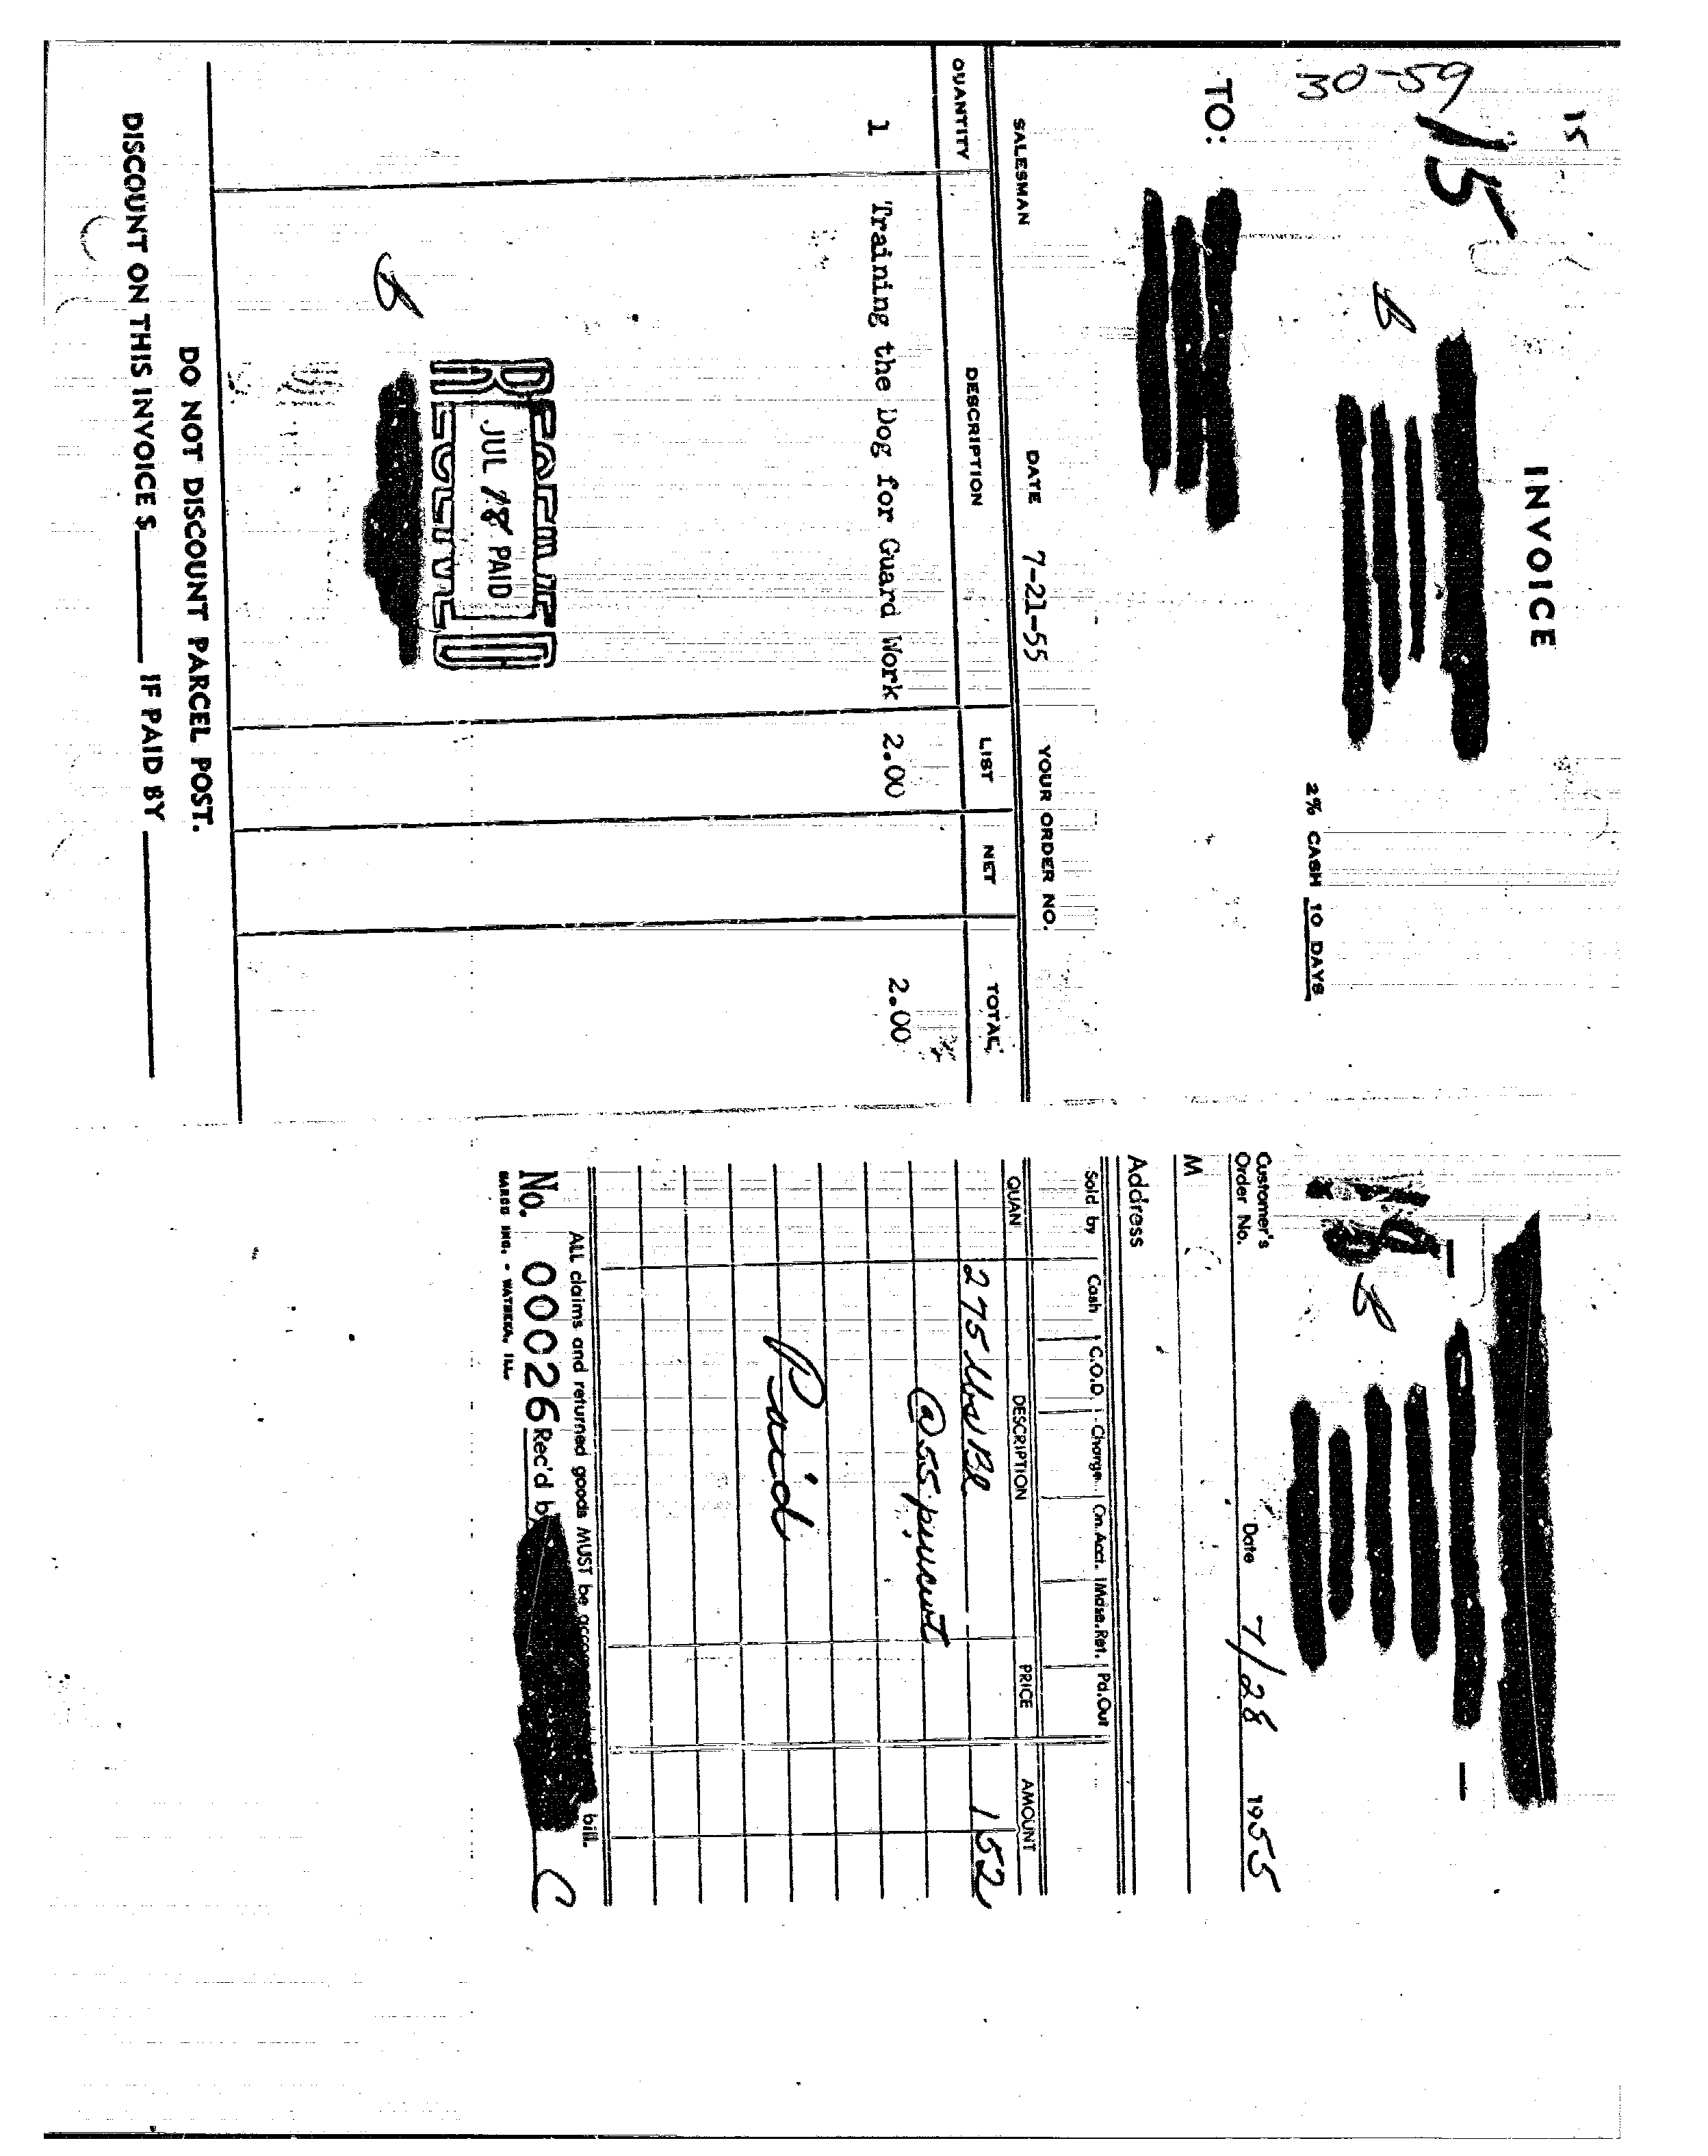 15
INVOICE
15
30-59
B
2% CASH 10 DAYS
TO:
SALESMAN DATE 7-21-55 YOUR ORDER NO.
QUANTITY DESCRIPTION LIST NET TOTAL
1 Training the Dog for Guard Work 2.00 2.00
RECEIVED
JUL 28 PAID
B
DO NOT DISCOUNT PARCEL POST.
DISCOUNT ON THIS INVOICE $ IF PAID BY
B
Customer's
Order No. Date 7/28 1955
M
Address
Sold by Cash C.O.D. Charge On Acct. Mdse. Ret. Pd. Out
QUAN DESCRIPTION PRICE AMOUNT
275 lbs 1 52
@ 55 per cwt
Paid
ALL claims and returned goods MUST be bill.
No. 00026 Rec'd b
WATSEKA, ILL.